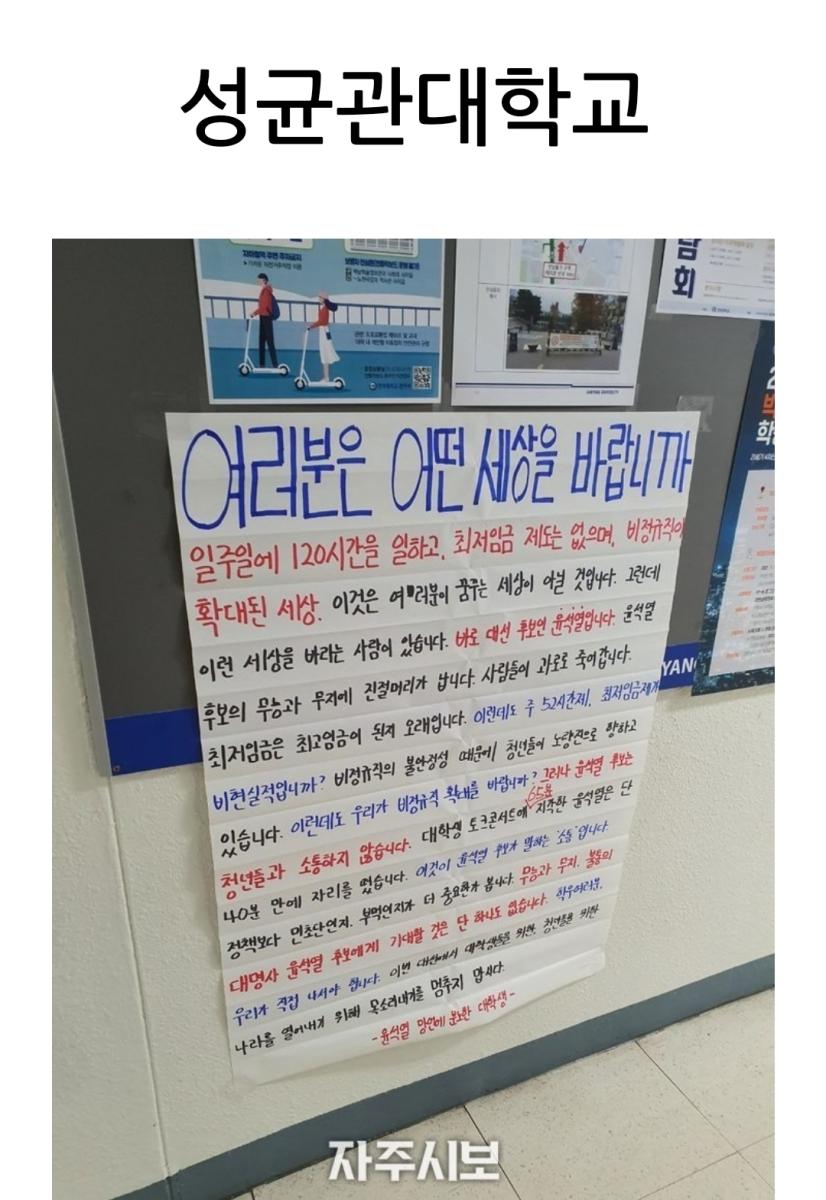 성균관대학교
자전거(퀵) 주변 주차금지
담
회
여러분은 어떤 세상을 바랍니까
일주일에 120시간을 일하고, 최저임금 제도는 없으며, 비정규직이
확대된 세상. 이것은 여러분이 꿈꾸는 세상이 아닐 것입니다. 그런데
이런 세상을 바라는 사람이 있습니다. 바로 대선 후보인 윤석열입니다. 윤석열
후보의 무능과 무지에 진절머리가 납니다. 사람들이 과로로 죽어갑니다.
최저임금은 최고임금이 된지 오래입니다. 이런데도 주 52시간제, 최저임금제가
비현실적입니까? 비정규직의 불안정성 때문에 청년들이 노량진으로 향하고
있습니다. 이런데도 우리가 비정규직 확대를 바랍니까? 그러나 윤석열 후보는
청년들과 소통하지 않습니다. 대학생 토크콘서트에 65분 지각한 윤석열은 단
40분 만에 자리를 떴습니다. 이것이 윤석열 후보가 말하는 '소통'입니다.
정책보다 민초단인지, 부먹인지가 더 중요한가 봅니다. 무능과 무지, 불통의
대명사 윤석열 후보에게 기대할 것은 단 하나도 없습니다. 학우여러분,
우리가 직접 나서야 합니다. 이번 대선에서 대학생들을 위한, 청년들을 위한
나라를 열어내기 위해 목소리내기를 멈추지 맙시다.
-윤석열 망언에 분노한 대학생-
YANG
자주시보